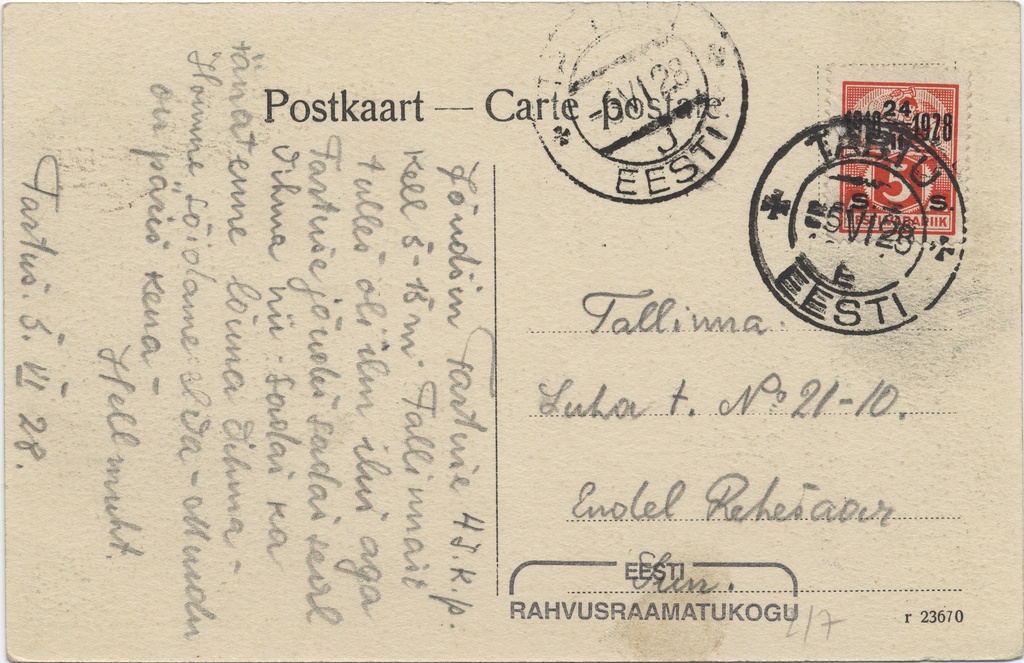 Postkaart — Carte postale.
TALLINN
-6 VI 28
J
EESTI
24 II
1918 1928
5 5
S. S.
EESTI VABARIIK
TARTU
-5 VI 28
EESTI
Jõudsin Tartusse 4 J. k. p.
kell 5-15 m. Tallinnast
tulles oli ilm ilus aga
Tartusse jõudes sadas seal
vihma nii sadas ka
tänatenne lõuna vihma -
Homme sõidame
on päris kena -
Hellmuht.
Tartus. 5. VI 28.
Tallinna.
Luha t. № 21-10.
Endel
EESTI
RAHVUSRAAMATUKOGU
1/7
r 23670